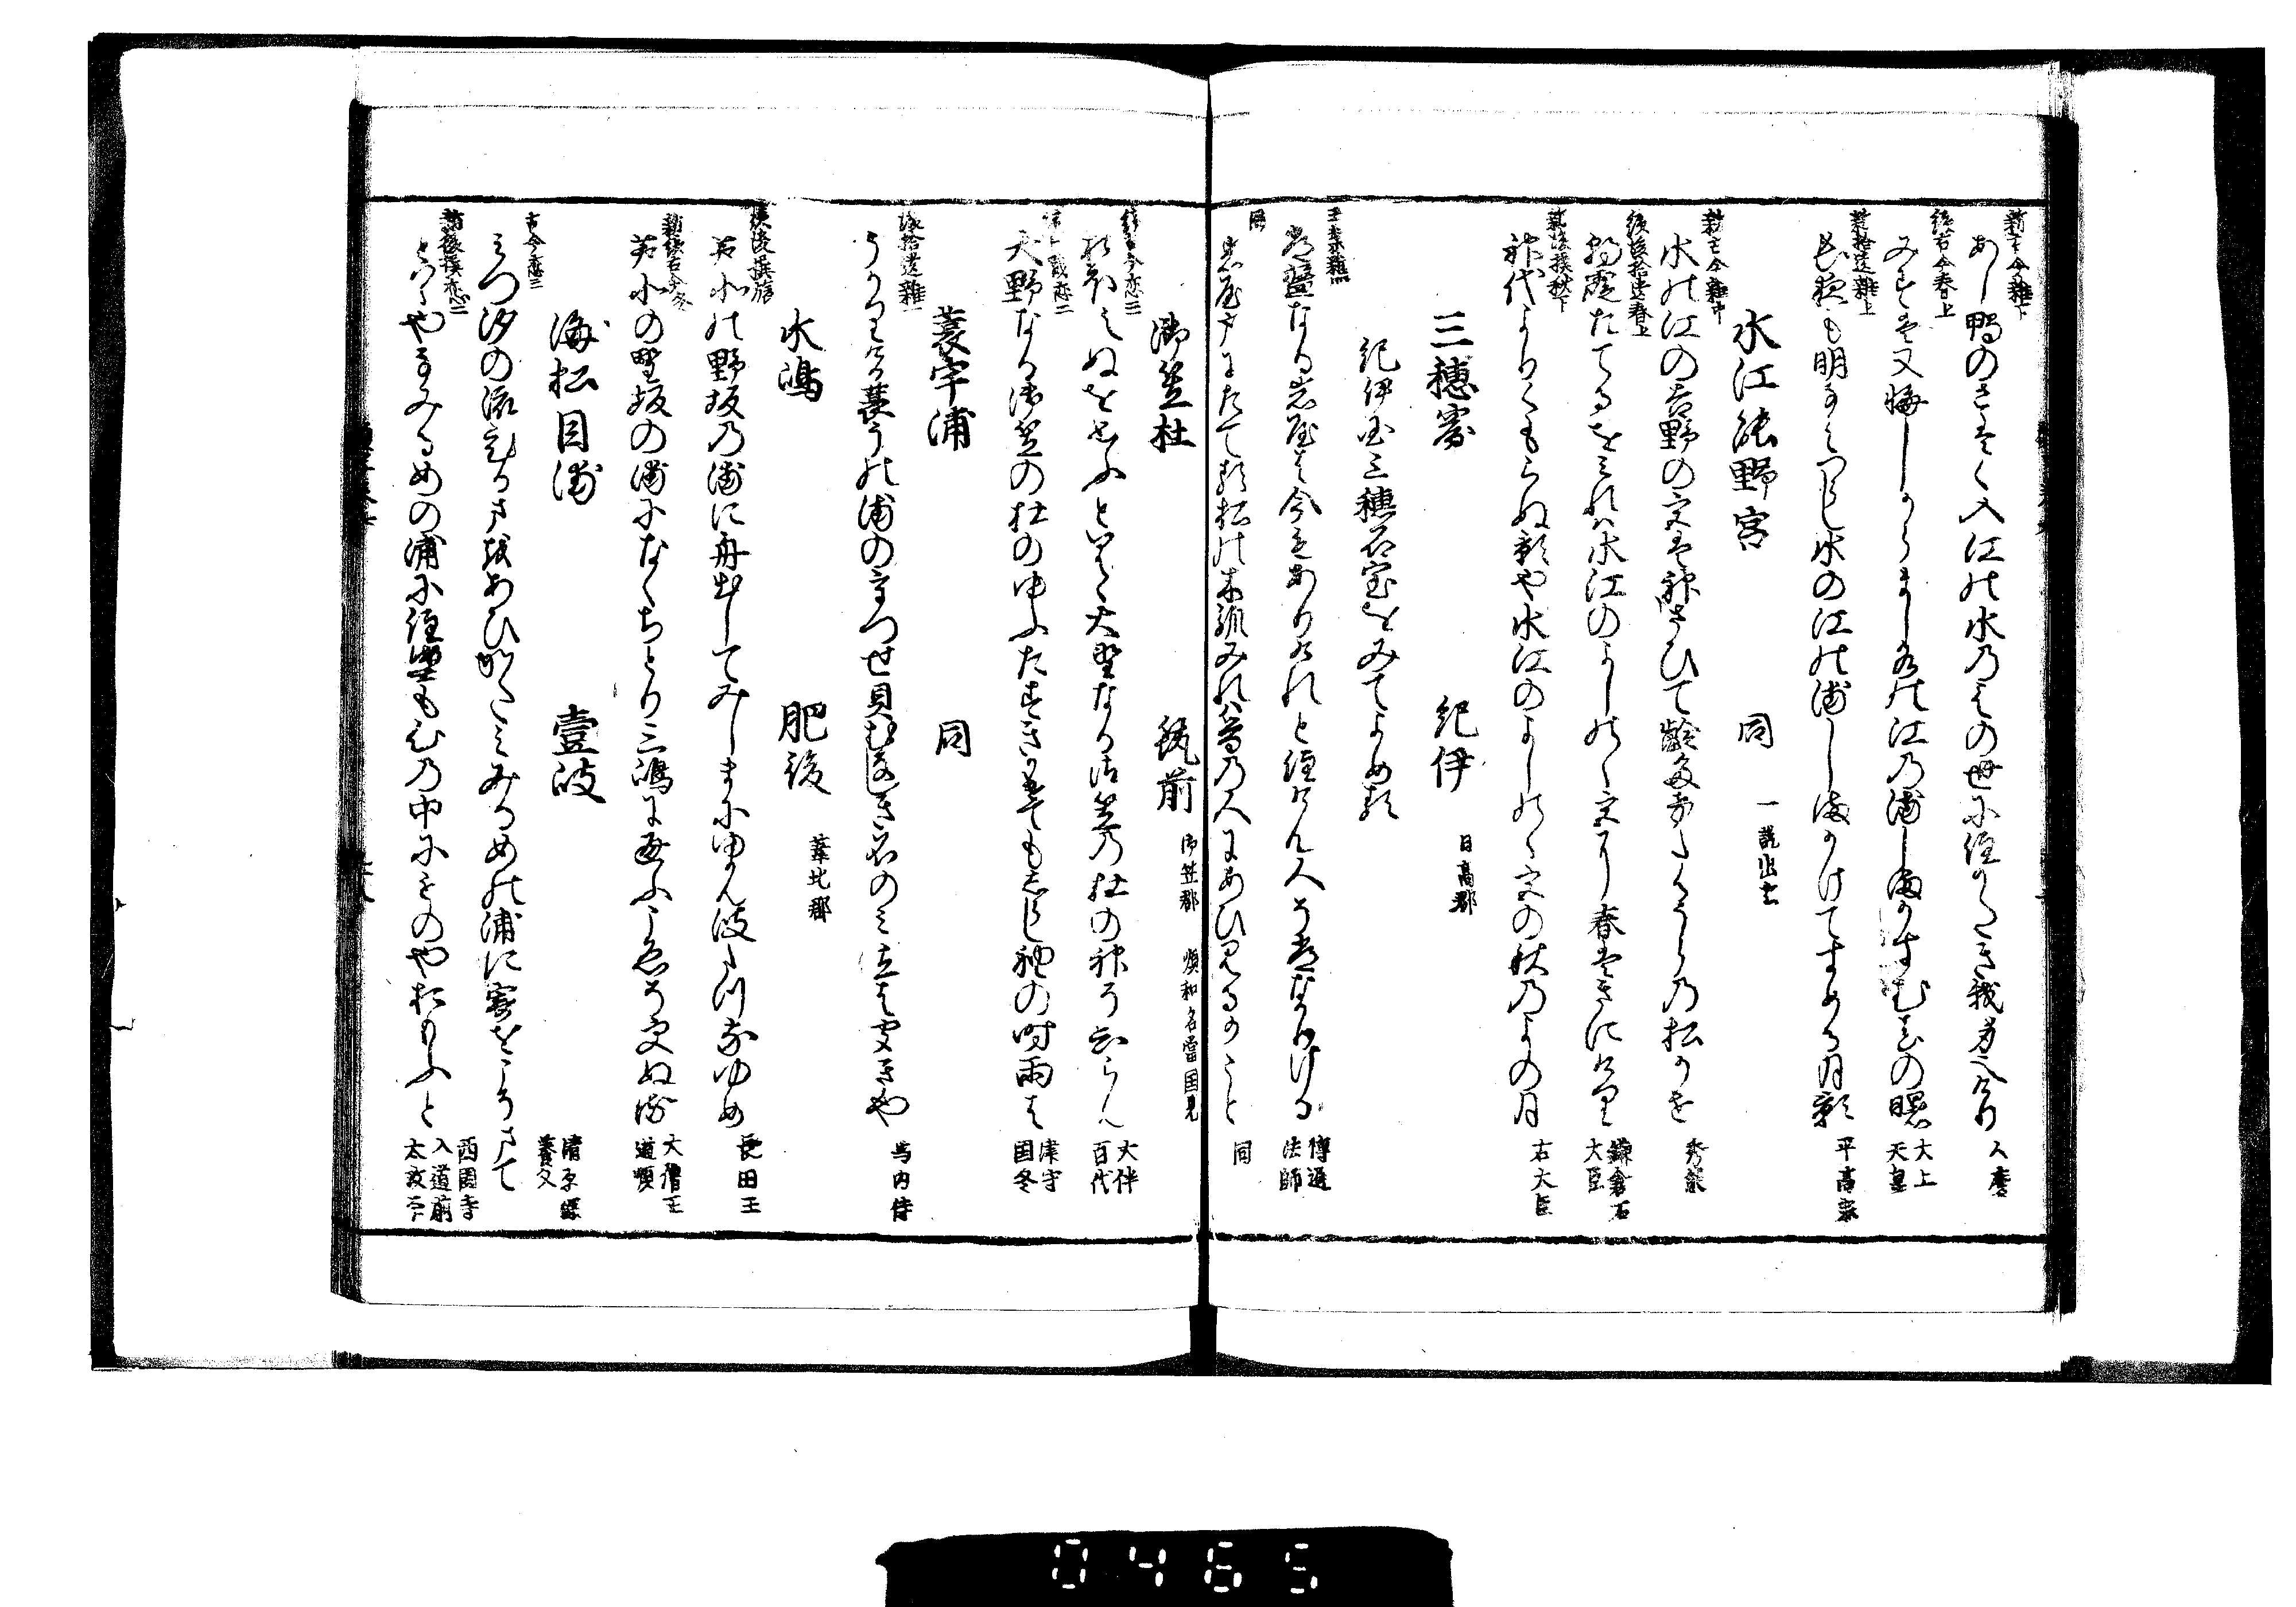 新古今雑下
あし鴨のさはく入江の水のえの世に住かたき我身也けり 人麿
続古今春上
みすは又悔しからまし水の江の浦しまかすむ春の曙 太上天皇
新拾遺雑上
長夜も明すみつらし水の江の浦しまかけてすめる月影 平高宗
水江能野宮 同 一説出雲
新古今雑中
水の江の吉野の宮は神さひて齢たけたるうらの松かせ 秀能
続後拾遺春上
朝霞たてるをみれは水江のよしのゝ宮に春はきにけり 鎌倉右大臣
新後撰秋下
神代よりくもらぬ影や水江のよしのゝ宮の秋のよの月 右大臣
三穂窟 紀伊 日高郡
紀伊国三穂石室をみてよめる
玉葉雑四
常盤なる岩屋は今もありけれと住ける人そ常なかりける 博通法師
同
岩屋戸にたてる松の木汝みれは昔の人にあひ見ることし 同
御笠杜 筑前 御笠郡 順和名当国見
続古今恋二
おもはぬをおもふといはゝ大野なる御笠の杜の神そしらん 大伴百代
大野なる御笠の杜のゆふたすきかけてもしらし袖の時雨は 津守国冬
蓑宇浦 同
後拾遺雑一
うかりける蓑うの浦のうつせ貝むなしき名のみ立はきゝきや 馬内侍
水嶋 肥後 葦北郡
続後撰旅
芦北の野坂の浦に舟出してみしまにゆかん波たつなゆめ 長田王
新続古今冬
芦北の野坂の浦になくちとり三嶋にかよふこゑそ更ぬる 大僧正道順
海松目浦 壹岐
古今恋三
みつ汐の流ひるまをあひかたみみるめの浦に寄をこそまて 清原深養父
新後撰恋二
とはゝやなみるめの浦に住蜑も心の中にものやおもふと 西園寺入道前太政大臣
0465